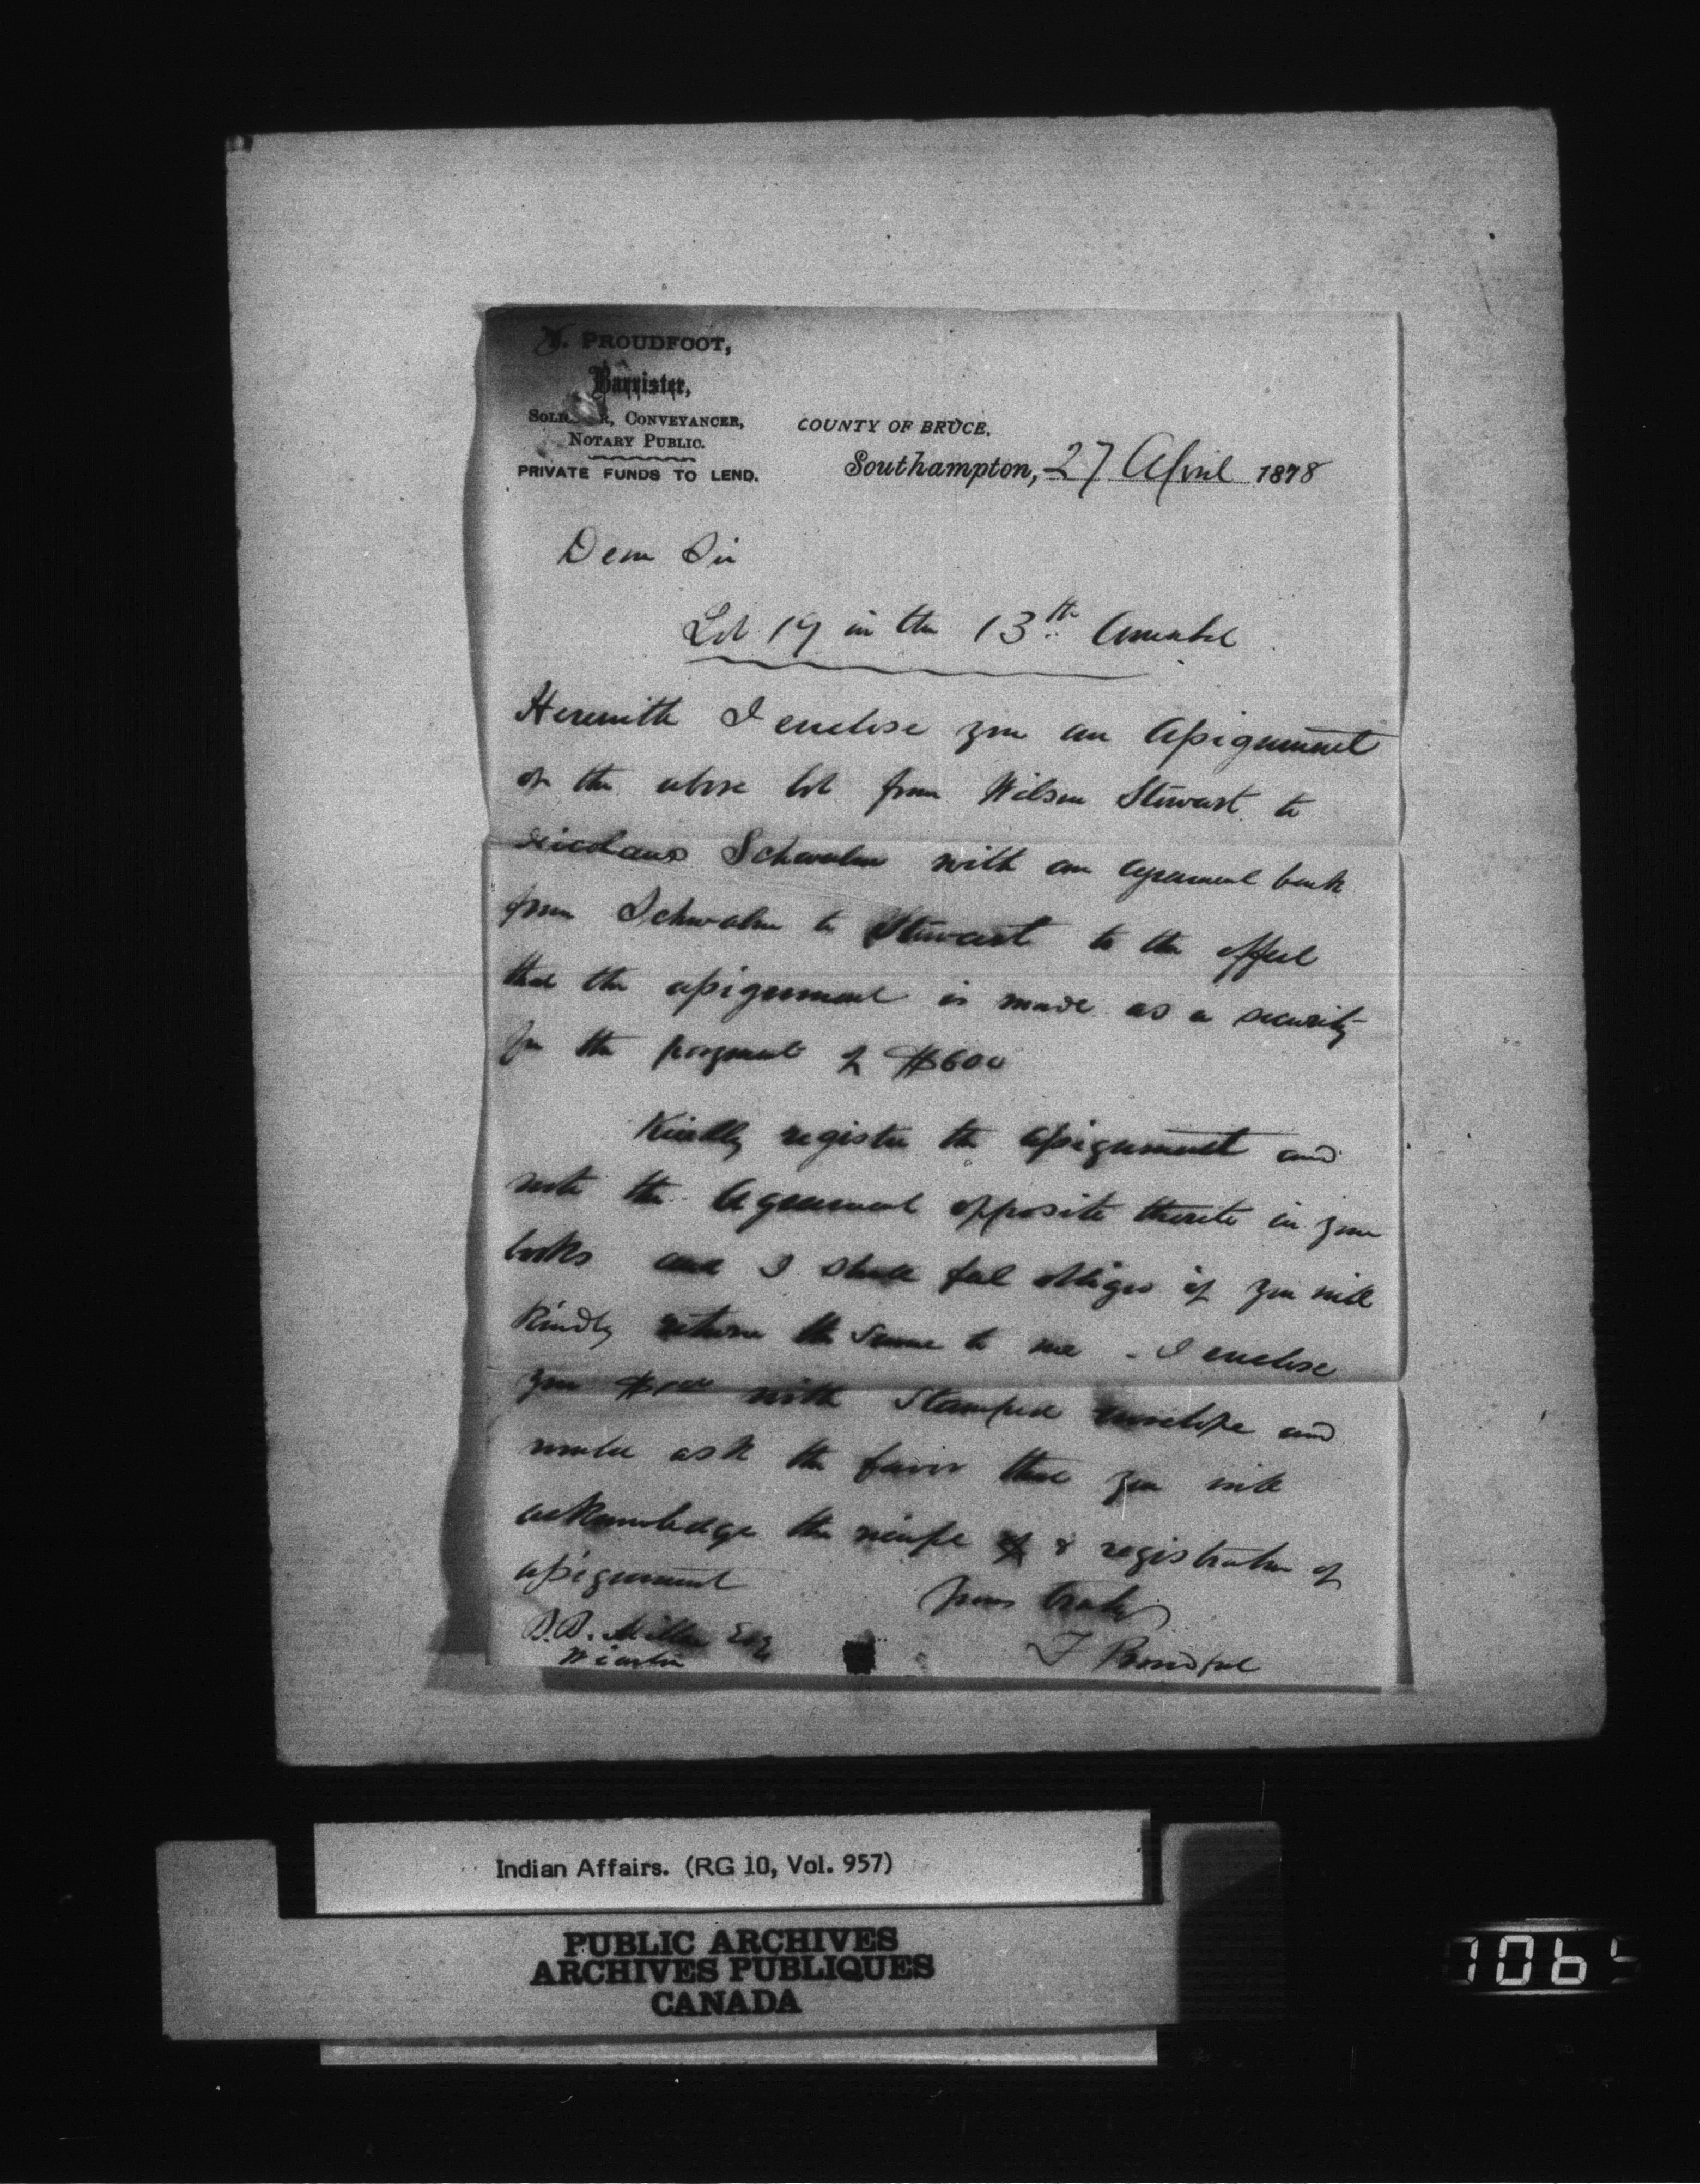 PROUDFOOT,
Barrister,
SOLR, CONVEYANCER,
NOTARY PUBLIC.
PRIVATE FUNDS TO LEND.
COUNTY OF BRUCE.
Southampton, 27 April 1878
Dear Sir
Lot 19 in the 13th Amabel
Herewith I enclose you an Assignment
of the above lot from Wilson Stewart to
Nicolaus Schwalm with an agreement back
from Schwalm to Stewart to the effect
that the assignment is made as a security
for the payment of $600
Kindly register the assignment and
note the Agreement opposite thereto in your
books and I shall feel obliged if you will
kindly return the same to me - I enclose
you with stamped envelope and
would ask the favor that you will
acknowledge the receipt & registration of
assignment
Yours truly
F Proudfoot
B.B. Miller Esq
Wiarton
Indian Affairs. (RG 10, Vol. 957)
PUBLIC ARCHIVES
ARCHIVES PUBLIQUES
CANADA